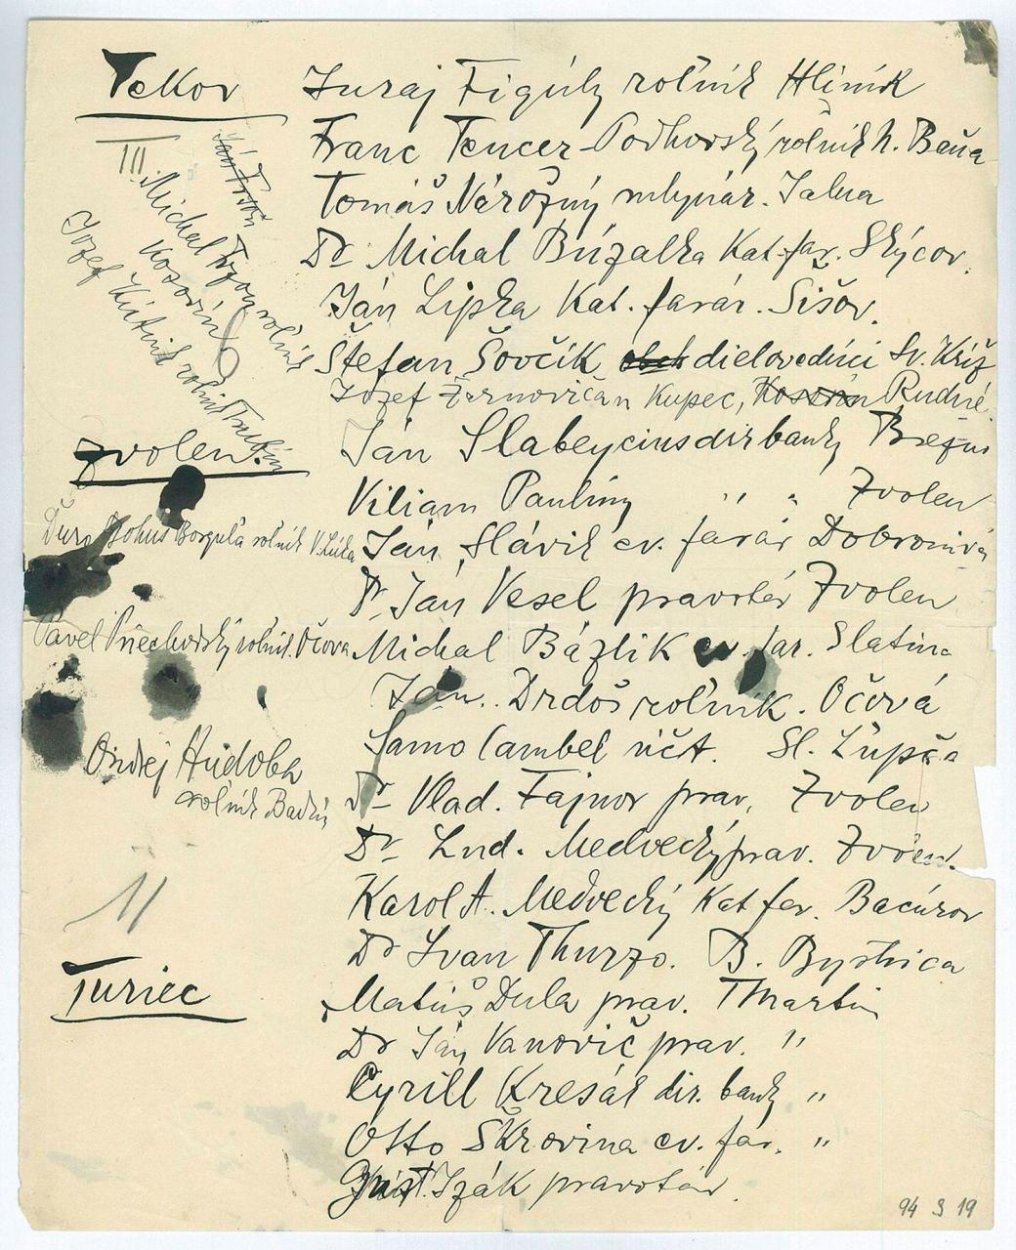 Tekov
Juraj Figúly roľník Hliník
III.
Franc Tencer-Podhorský roľník N. Baňa
Tomáš Nárožný mlynár. Jalna
Dr Michal Búzalka Kat. far. Skýcov.
Ján Lipka Kat. farár. Šišov.
Michal Kozorín roľník
Jozef Kútnik roľník Trubín
Štefan Šovčík dielovedúci Sv. Kríž
Jozef Žarnovičan Kupec, Kosorín Rudné
Zvolen
Ján Slabeycius dir banky Brezno
Viliam Pauliny " " Zvolen
Ďuro Bohuš Borguľa roľník V. Lúka
Ján Slávik ev. farár Dobronivá
Dr. Ján Vesel pravotár Zvolen
Pavel Priechodský roľník. Očova
Michal Bázlik ev. far. Slatina
Ján. Drdoš roľník. Očová
Samo Cambel účt. Sl. Ľupča
Ondrej Hudoba
roľník Badín
Dr Vlad. Fajnor prav. Zvolen
Dr Lud. Medvecký prav. Zvolen.
11
Karol A. Medvecký Kat far. Bacúrov
Dr Ivan Thurzo. B. Bystrica
Turiec
Matúš Dula prav. TMartin
Dr Ján Vanovič prav. "
Cyrill Kresák dir. banky "
Otto Škrovina ev. far. "
Izák pravotár.
94 S 19